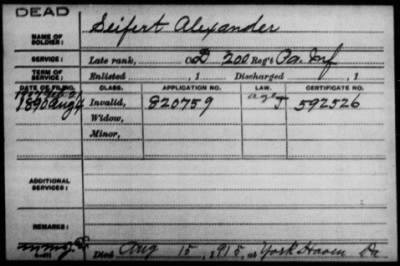 DEAD
NAME OF SOLDIER: Seifert Alexander
SERVICE: Late rank, Co D 200 Reg't Pa. Inf
TERM OF SERVICE: Enlisted , 1 Discharged , 1
DATE OF FILING. CLASS. APPLICATION NO. LAW. CERTIFICATE NO.
1890 Aug 4 Invalid, 820759 J 592526
Widow,
Minor,
ADDITIONAL SERVICES:
REMARKS:
Died Aug 15, 1915, at York Haven Pa